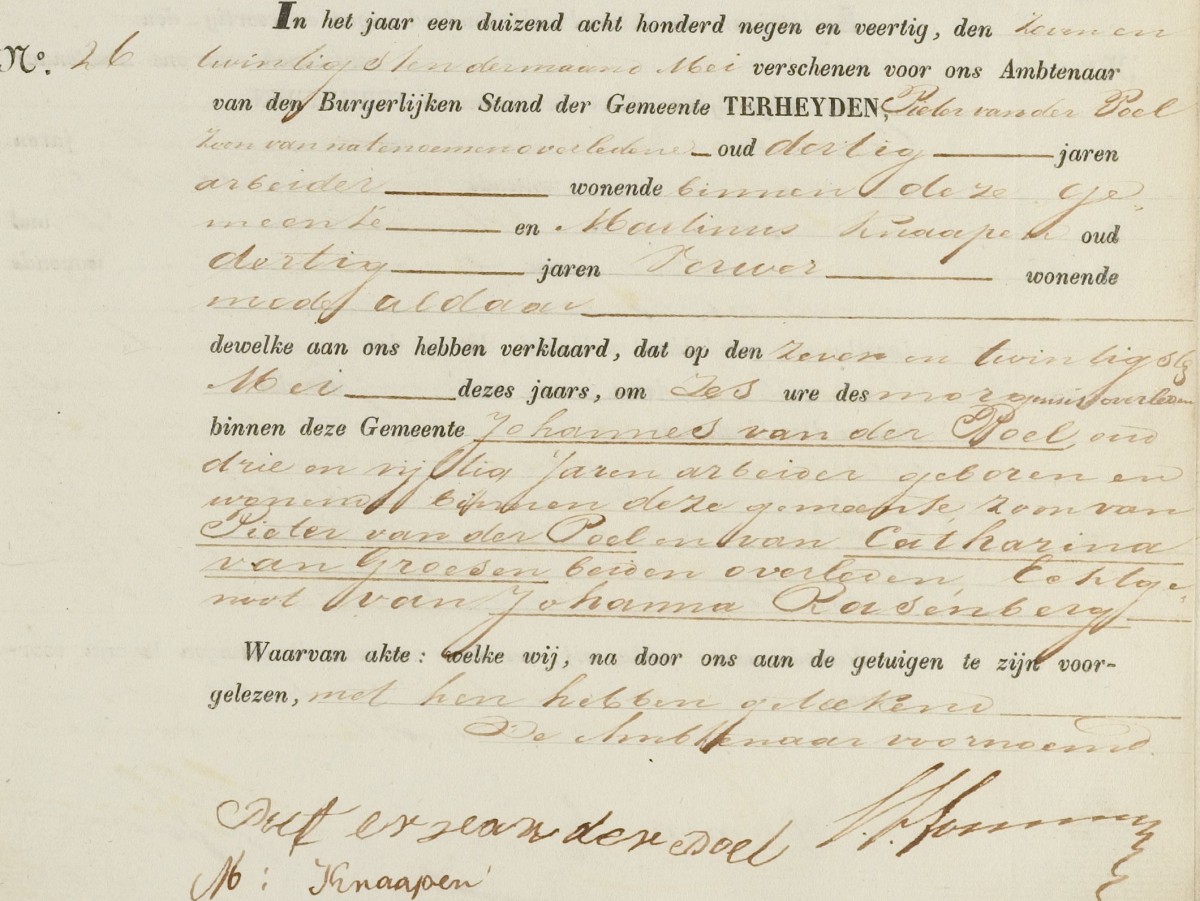 In het jaar een duizend acht honderd negen en veertig, den zeven en
No. 26 twintigsten der maand Mei verschenen voor ons Ambtenaar
van den Burgerlijken Stand der Gemeente TERHEYDEN, Pieter van der Poel
zoon van natenoemen overledene oud dertig jaren
arbeider wonende binnen deze ge
meente en Martinus Knaapen oud
dertig jaren Verwer wonende
mede aldaar
dewelke aan ons hebben verklaard, dat op den zeven en twintigste
Mei dezes jaars, om Zes ure des morgens is overleden
binnen deze Gemeente Johannes van der Poel, oud
drie en vijftig Jaren arbeider geboren en
wonend binnen deze gemeente zoon van
Pieter van der Poel en van Catharina
van Groesen beiden overleden Echtge-
noot van Johanna Rasenberg
Waarvan akte: welke wij, na door ons aan de getuigen te zijn voor-
gelezen, met hen hebben geteekend
De Ambtenaar voornoemd
van der Poel
M: Knaapen